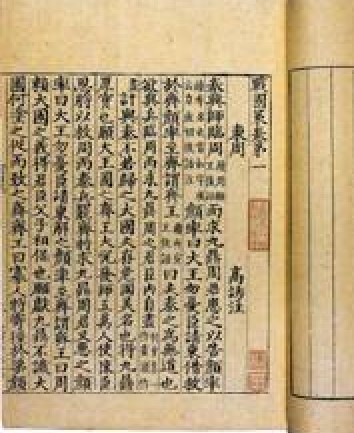 戰國策卷第一
東周 高誘注
秦興師臨周而求九鼎周君患之以告顏率
顏率曰大王勿憂臣請東借救
於齊顏率至齊謂齊王曰夫秦之為無道也
欲興兵臨周而求九鼎周之君臣內自盡
計與秦不若歸之大國夫存危國美名也得九鼎
厚寶也願大王圖之齊王大悅發師五萬人使陳臣
思將以救周而秦兵罷齊將求九鼎周君又患之顏
率曰大王勿憂臣請東解之顏率至齊謂齊王曰周
賴大國之義得君臣父子相保也願獻九鼎不識大
國何塗之從而致之齊齊王曰寡人將寄徑於梁顏